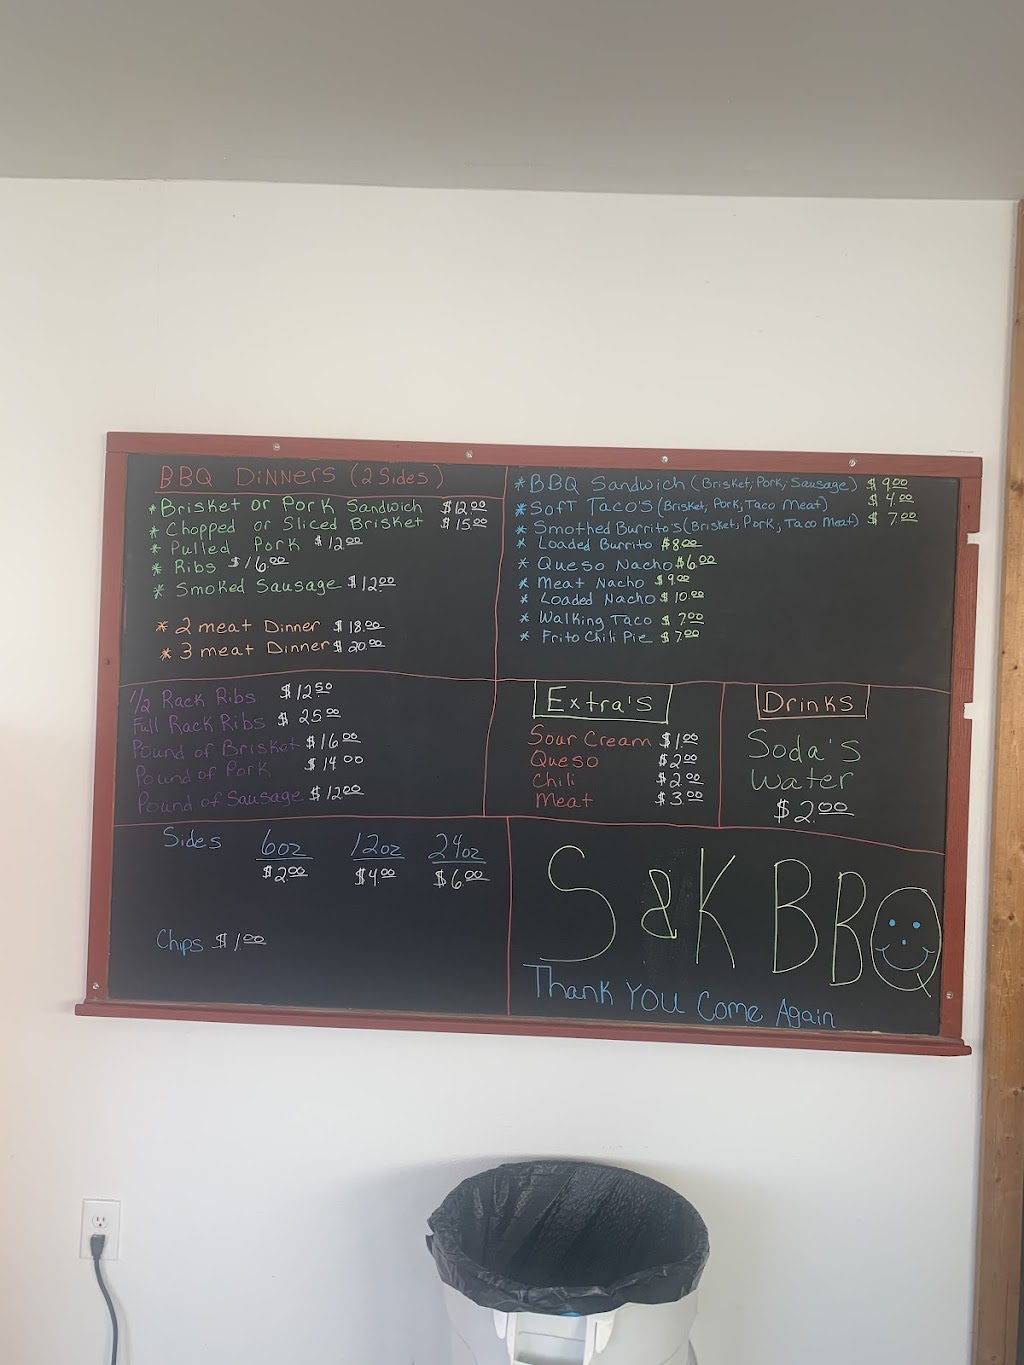 BBQ DiNNERS (2 Sides)
* Brisket or Pork Sandwich $12.00
* Chopped or Sliced Brisket $15.00
* Pulled Pork $12.00
* Ribs $16.00
* Smoked Sausage $12.00
* 2 meat Dinner $18.00
* 3 meat Dinner $20.00
* BBQ Sandwich (Brisket, Pork, Sausage) $9.00
* Soft Taco's (Brisket, Pork, Taco Meat) $4.00
* Smothed Burrito's (Brisket, Pork, Taco Meat) $7.00
* Loaded Burrito $8.00
* Queso Nacho $6.00
* Meat Nacho $9.00
* Loaded Nacho $10.00
* Walking Taco $7.00
* Frito Chili Pie $7.00
1/2 Rack Ribs $12.50
Full Rack Ribs $25.00
Pound of Brisket $16.00
Pound of Pork $14.00
Pound of Sausage $12.00
Extra's
Sour Cream $1.00
Queso $2.00
Chili $2.00
Meat $3.00
Drinks
Soda's
Water
$2.00
Sides 6oz 12oz 24oz
$2.00 $4.00 $6.00
Chips $1.00
S&K BBQ
Thank You Come Again